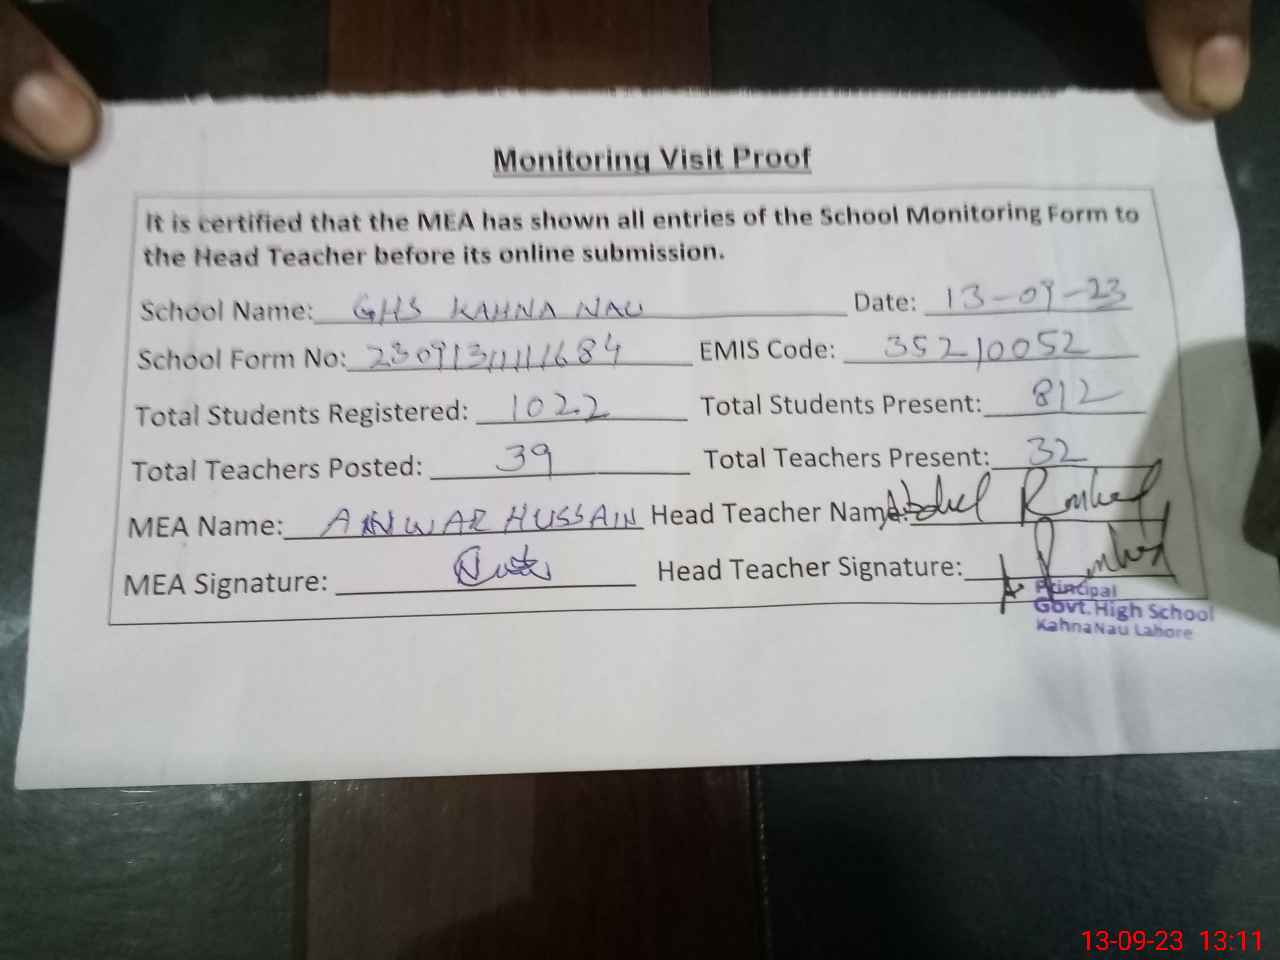 Monitoring Visit Proof
It is certified that the MEA has shown all entries of the School Monitoring Form to
the Head Teacher before its online submission.
School Name: GHS KAHNA NAU Date: 13-09-23
School Form No: EMIS Code: 35210052
Total Students Registered: 1022 Total Students Present: 812
Total Teachers Posted: 39 Total Teachers Present: 32
MEA Name: ANWAR HUSSAIN Head Teacher Name: Abdul
MEA Signature: Head Teacher Signature:
Principal
Govt. High School
Kahna Nau Lahore
13-09-23 13:11